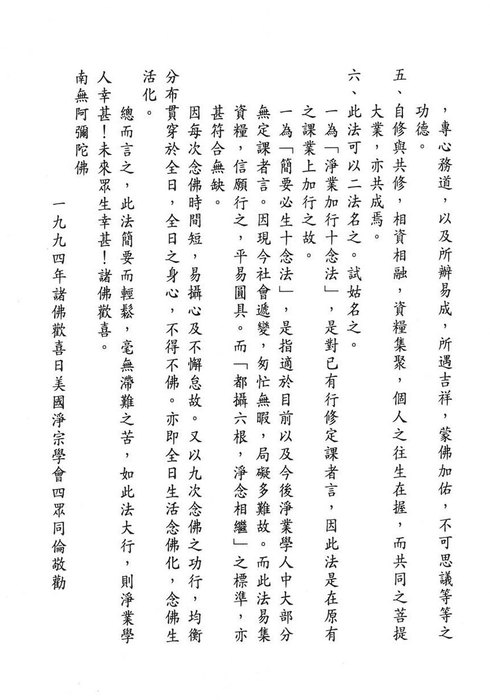 ，專心務道，以及所辦易成，所遇吉祥，蒙佛加佑，不可思議等等之
功德。
五、自修與共修，相資相融，資糧集聚，個人之往生在握，而共同之菩提
大業，亦共成焉。
六、此法可以二法名之。試姑名之。
一為「淨業加行十念法」，是對已有行修定課者言，因此法是在原有
之課業上加行之故。
一為「簡要必生十念法」，是指適於目前以及今後淨業學人中大部分
無定課者言。因現今社會遞變，匆忙無暇，局礙多難故。而此法易集
資糧，信願行之，平易圓具。而「都攝六根，淨念相繼」之標準，亦
甚符合無缺。
因每次念佛時間短，易攝心及不懈怠故。又以九次念佛之功行，均衡
分布貫穿於全日，全日之身心，不得不佛。亦即全日生活念佛化，念佛生
活化。
總而言之，此法簡要而輕鬆，毫無滯難之苦，如此法大行，則淨業學
人幸甚！未來眾生幸甚！諸佛歡喜。
南無阿彌陀佛
一九九四年諸佛歡喜日美國淨宗學會四眾同倫敬勸